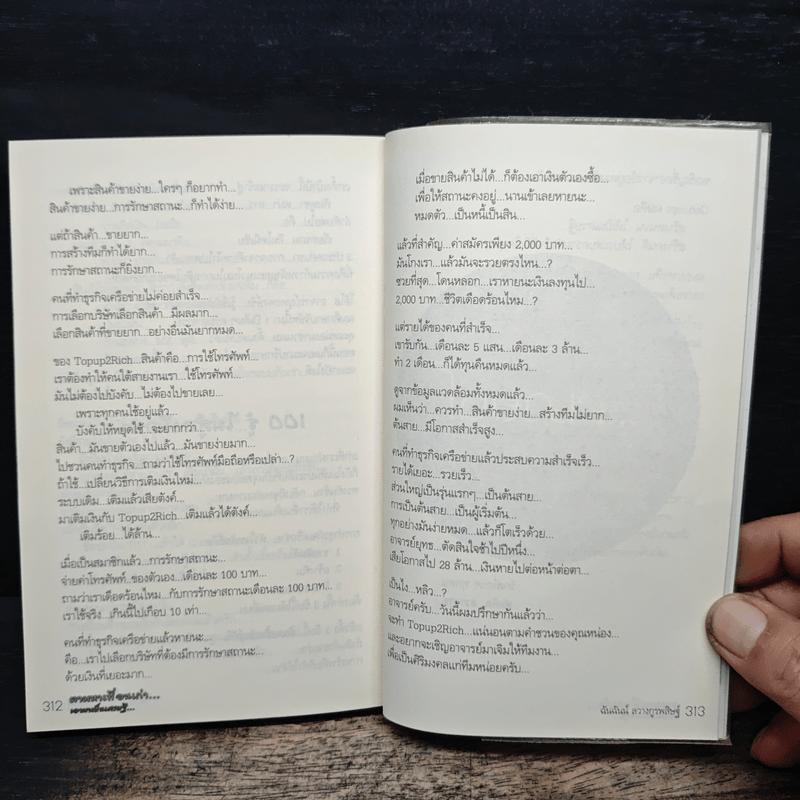 เพราะสินค้าขายง่าย...ใครๆ ก็อยากทำ...
สินค้าขายง่าย...การรักษาสถานะ...ก็ทำได้ง่าย...
แต่ถ้าสินค้า...ขายยาก...
การสร้างทีมก็ทำได้ยาก...
การรักษาสถานะก็ยิ่งยาก...
คนที่ทำธุรกิจเครือข่ายไม่ค่อยสำเร็จ...
การเลือกบริษัทเลือกสินค้า...มีผลมาก...
เลือกสินค้าที่ขายยาก...อย่างอื่นมันยากหมด...
ของ Topup2Rich...สินค้าคือ...การใช้โทรศัพท์...
เราต้องทำให้คนใต้สายงานเรา...ใช้โทรศัพท์...
มันไม่ต้องไปบังคับ...ไม่ต้องไปขายเลย...
เพราะทุกคนใช้อยู่แล้ว...
บังคับให้หยุดใช้...จะยากกว่า...
สินค้า...มันขายตัวเองไปแล้ว...มันขายง่ายมาก...
ไปชวนคนทำธุรกิจ...ถามว่าใช้โทรศัพท์มือถือหรือเปล่า...?
ถ้าใช้...เปลี่ยนวิธีการเติมเงินใหม่...
ระบบเดิม...เติมแล้วเสียตังค์...
มาเติมเงินกับ Topup2Rich...เติมแล้วได้ตังค์...
เติมร้อย...ได้ล้าน...
เมื่อเป็นสมาชิกแล้ว...การรักษาสถานะ...
จ่ายค่าโทรศัพท์..ของตัวเอง...เดือนละ 100 บาท...
ถามว่าเราเดือดร้อนไหม...กับการรักษาสถานะเดือนละ 100 บาท...
เราใช้จริง...เกินนี้ไปเกือบ 10 เท่า...
คนที่ทำธุรกิจเครือข่ายแล้วหายนะ...
คือ...เราไปเลือกบริษัทที่ต้องมีการรักษาสถานะ...
ด้วยเงินที่เยอะมาก...
312
เมื่อขายสินค้าไม่ได้...ก็ต้องเอาเงินตัวเองซื้อ...
เพื่อให้สถานะคงอยู่...นานเข้าเลยหายนะ...
หมดตัว...เป็นหนี้เป็นสิน...
แล้วที่สำคัญ...ค่าสมัครเพียง 2,000 บาท...
มันโกงเรา...แล้วมันจะรวยตรงไหน...?
ซวยที่สุด...โดนหลอก...เราหายนะเงินลงทุนไป...
2,000 บาท...ชีวิตเดือดร้อนไหม...?
แต่รายได้ของคนที่สำเร็จ...
เขารับกัน...เดือนละ 5 แสน...เดือนละ 3 ล้าน...
ทำ 2 เดือน...ก็ได้ทุนคืนหมดแล้ว...
ดูจากข้อมูลแวดล้อมทั้งหมดแล้ว...
ผมเห็นว่า...ควรทำ...สินค้าขายง่าย...สร้างทีมไม่ยาก...
ต้นสาย...มีโอกาสสำเร็จสูง...
คนที่ทำธุรกิจเครือข่ายแล้วประสบความสำเร็จเร็ว...
รายได้เยอะ...รวยเร็ว...
ส่วนใหญ่เป็นรุ่นแรกๆ...เป็นต้นสาย...
การเป็นต้นสาย...เป็นผู้เริ่มต้น...
ทุกอย่างมันง่ายหมด...แล้วก็โตเร็วด้วย...
อาจารย์ยุทธ...ตัดสินใจช้าไปปีหนึ่ง...
เสียโอกาสไป 28 ล้าน...เงินหายไปต่อหน้าต่อตา...
เป็นไง...หลิว...?
อาจารย์ครับ...วันนี้ผมปรึกษากันแล้วว่า...
จะทำ Topup2Rich...แน่นอนตามคำชวนของคุณหน่อง...
และอยากจะเชิญอาจารย์มาเจิมให้ทีมงาน...
เพื่อเป็นศิริมงคลแก่ทีมหน่อยครับ...
313